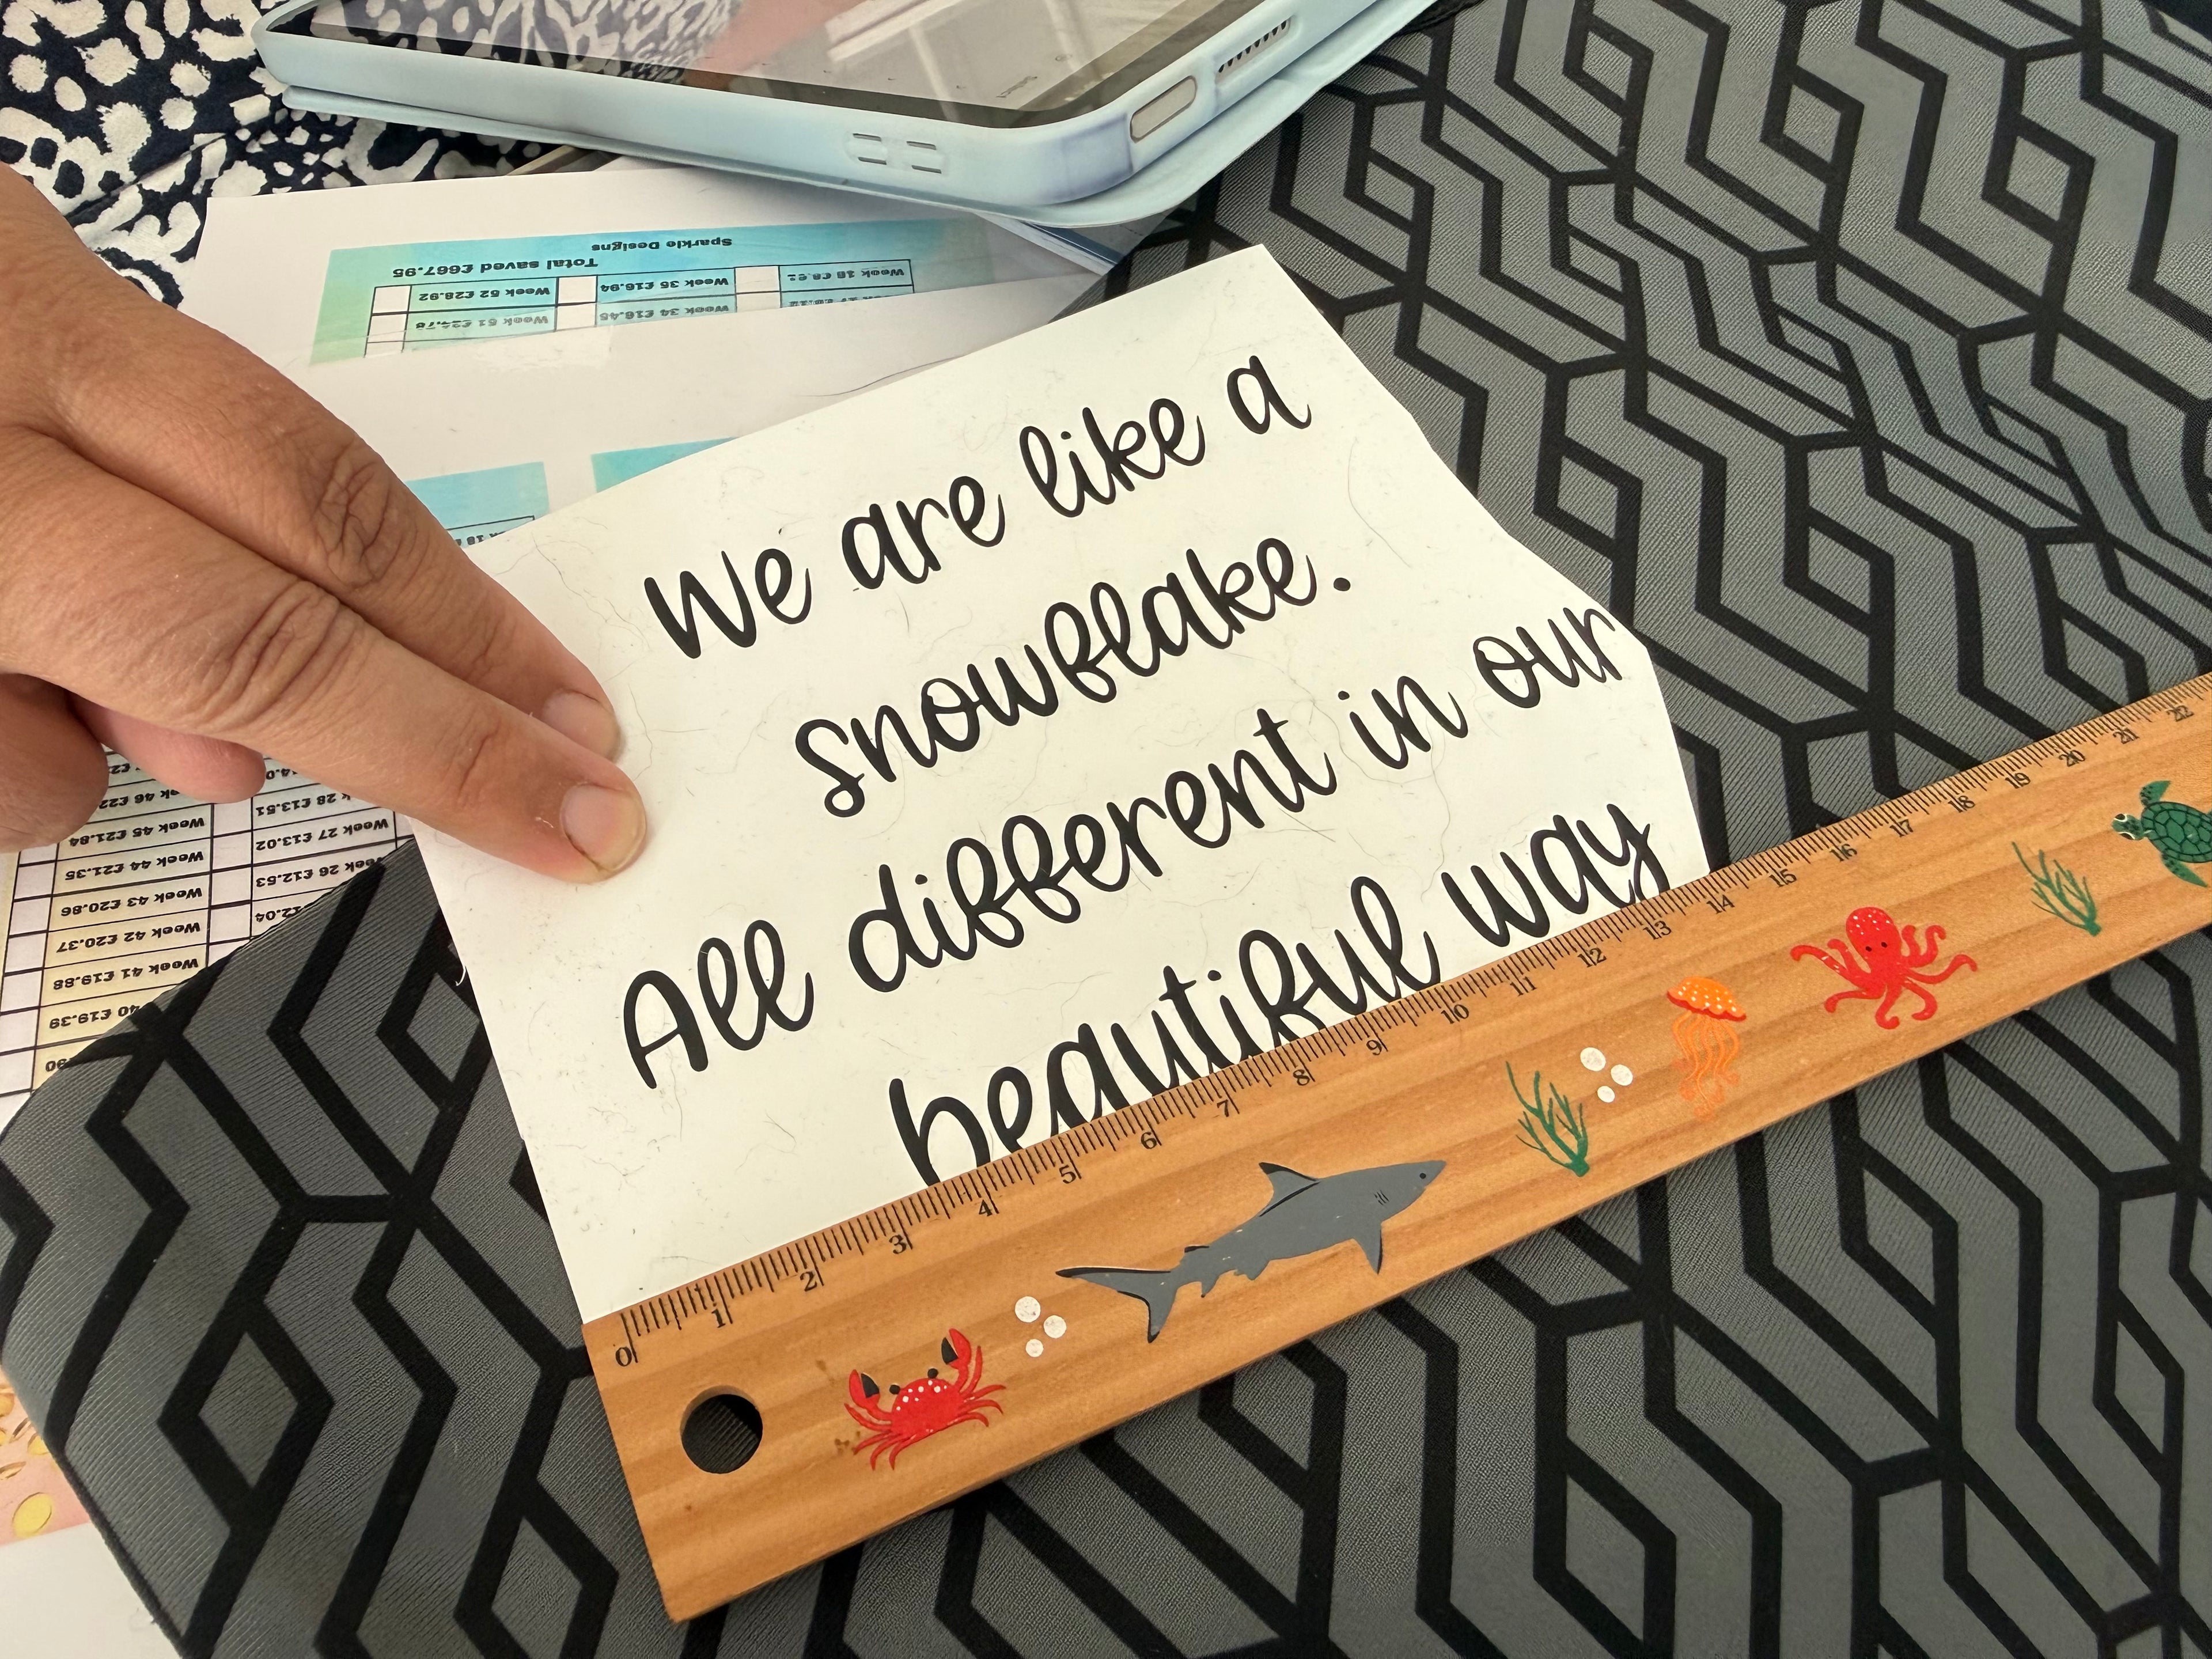 Sparkle Designs
Total saved £667.95
Week 52 £28.92
Week 35 £16.94
Week 18
Week 51
Week 34 £16.45
We are like a
snowflake.
All different in our
beautiful way
28 £13.51
Week 27 £13.02
26 £12.53
46
Week 45 £21.84
Week 44 £21.35
Week 43 £20.86
Week 42 £20.37
Week 41 £19.88
40 £19.39
0 1 2 3 4 5 6 7 8 9 10 11 12 13 14 15 16 17 18 19 20 21 22